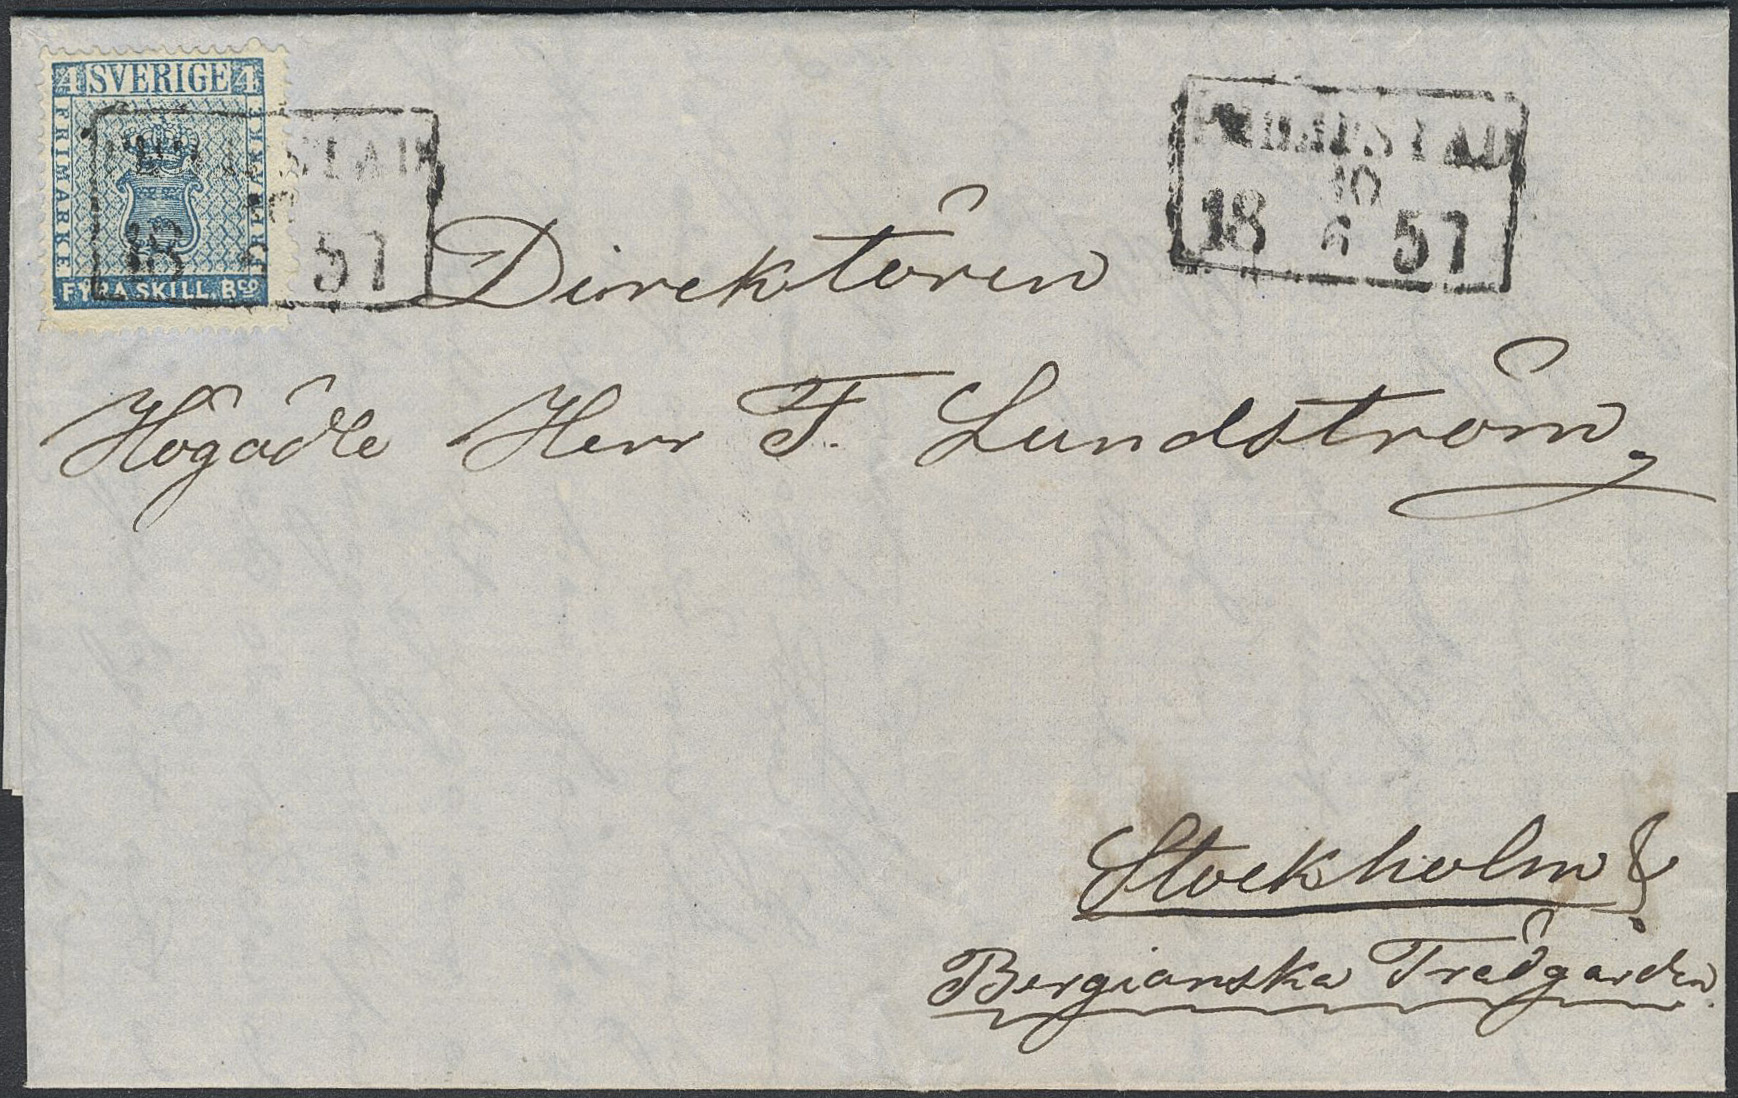 4 SVERIGE 4
FRIMÄRKE
FRIMÄRKE
FYRA SKILL. Bco
18 57
10
18 6 57
Direktören
Högädle Herr F. Lundström,
Stockholm &
Bergianska Trädgården.